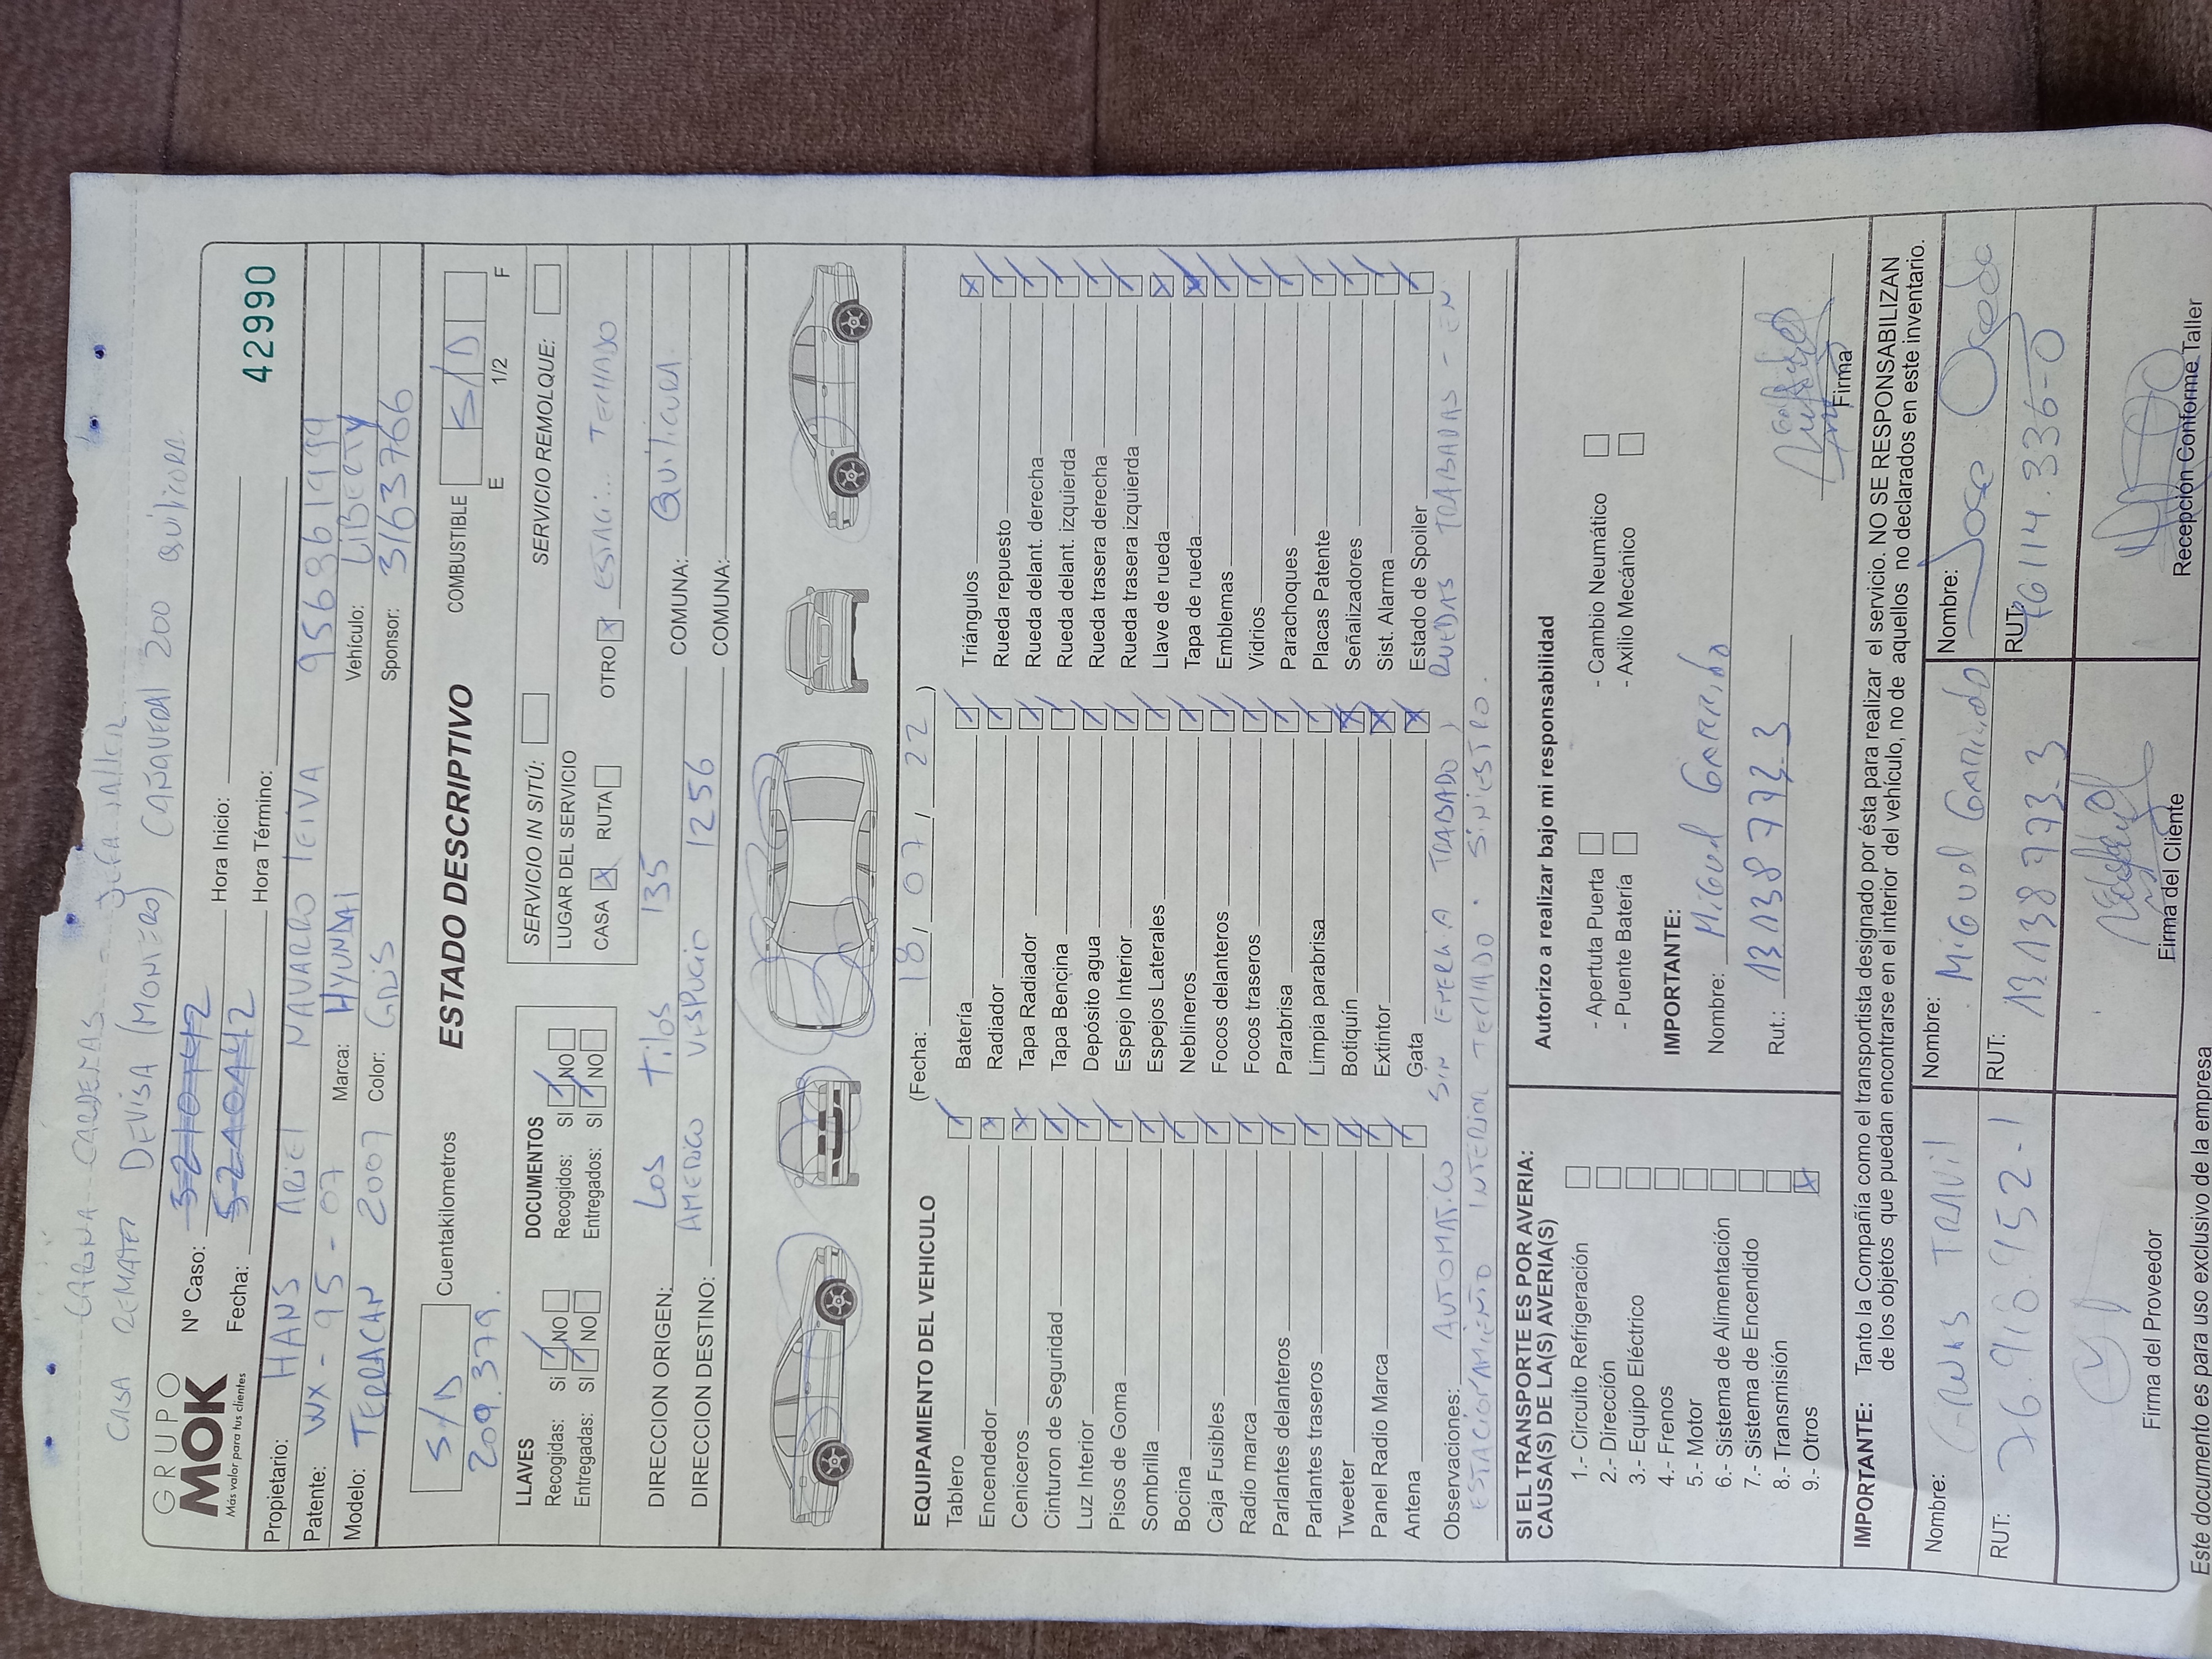 CARDENAS
CASA REMATES DEVISA (MONTERO) CAÑAVERAL 200 QUILICURA
GRUPO
MOK
Más valor para tus clientes
Nº Caso: 5210442 Hora Inicio:
42990
Fecha: 5240442 Hora Término:
Propietario: HANS ARIEL NAVARRO LEIVA 956361999
Patente: WX-95-07 Marca: HYUNDAI Vehículo: LIBERTY
Modelo: TERRACAN 2007 Color: GRIS Sponsor: 3163766
S/D
209.379.
Cuentakilometros
ESTADO DESCRIPTIVO
COMBUSTIBLE S/D
E 1/2 F
LLAVES
Recogidas: SI NO
Entregadas: SI NO
DOCUMENTOS
Recogidos: SI NO
Entregados: SI NO
SERVICIO IN SITÚ: SERVICIO REMOLQUE:
LUGAR DEL SERVICIO
CASA X RUTA OTRO X ESTACI... TECHADO
DIRECCION ORIGEN: LOS TILOS 135 COMUNA: QUILICURA.
DIRECCION DESTINO: AMERICO VESPUCIO 1256 COMUNA:
EQUIPAMIENTO DEL VEHICULO (Fecha: 18, 07, 22)
Tablero Batería Triángulos X
Encendedor X Radiador Rueda repuesto
Ceniceros X Tapa Radiador Rueda delant. derecha
Cinturon de Seguridad Tapa Bencina Rueda delant. izquierda
Luz Interior Depósito agua Rueda trasera derecha
Pisos de Goma Espejo Interior Rueda trasera izquierda
Sombrilla Espejos Laterales Llave de rueda X
Bocina Neblineros Tapa de rueda X
Caja Fusibles Focos delanteros Emblemas
Radio marca Focos traseros Vidrios
Parlantes delanteros Parabrisa Parachoques
Parlantes traseros Limpia parabrisa Placas Patente
Tweeter Botiquín X Señalizadores
Panel Radio Marca Extintor X Sist. Alarma
Antena Gata X Estado de Spoiler
Observaciones: AUTOMATICO SIN TRABADO, RUEDAS TRABADAS - EN
ESTACIONAMIENTO INTERIOR TECHADO. SINIESTRO.
SI EL TRANSPORTE ES POR AVERIA:
CAUSA(S) DE LA(S) AVERIA(S)
1.- Circuito Refrigeración
2.- Dirección
3.- Equipo Eléctrico
4.- Frenos
5.- Motor
6.- Sistema de Alimentación
7.- Sistema de Encendido
8.- Transmisión
9.- Otros X
Autorizo a realizar bajo mi responsabilidad
- Apertuta Puerta - Cambio Neumático
- Puente Batería - Axilio Mecánico
IMPORTANTE:
Nombre: MIGUEL GARRIDO
Rut.: 13138773-3
Firma
IMPORTANTE: Tanto la Compañía como el transportista designado por ésta para realizar el servicio. NO SE RESPONSABILIZAN
de los objetos que puedan encontrarse en el interior del vehículo, no de aquellos no declarados en este inventario.
Nombre: GRUAS TRAVIL Nombre: MIGUEL GARRIDO Nombre: Jose
RUT: 76.916.952-1 RUT: 13138773-3 RUT: 16114.336-0
Firma del Proveedor Firma del Cliente Recepción Conforme Taller
Este documento es para uso exclusivo de la empresa